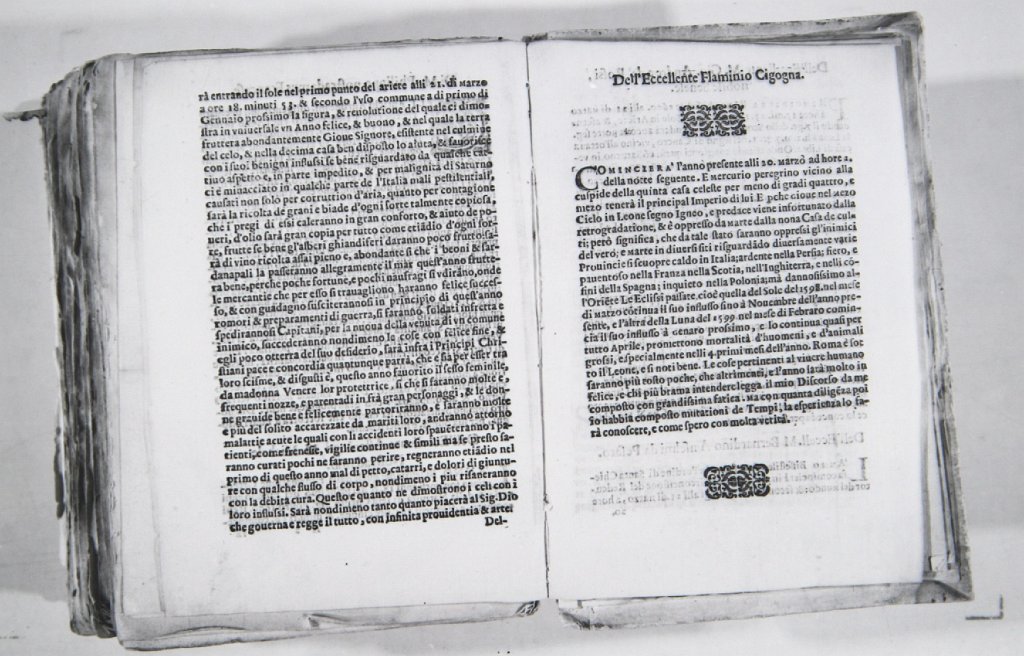 rà entrando il sole nel primo punto del ariete alli 21. di Marzo
a ore 18. minuti 53. & secondo l'vso commune a di primo di
Gennaio prossimo la figura, & reuolutione del quale ci dimo
stra in vniuersale vn Anno felice, & buono, & nel quale la terra
fruttera abondantemente Gioue Signore, esistente nel culmine
del celo, & nella decima casa ben disposto lo aiuta, & fauorisce
con i suoi benigni influssi se bene risguardato da qualche cat-
tiuo aspetto e, in parte impedito, & per malignità di Saturno
ci e minacciato in qualche parte de l'Italia mali pestilentiali,
non solo per corruttion d'aria, quanto per contagione
sarà la ricolta de grani e biade d'ogni sorte talmente copiosa,
che i pregi di essi caleranno in gran conforto, & aiuto de po-
ueri, d'olio sarà gran copia per tutto come etiãdio d'ogni sor-
te, frutte se bene gl'alberi ghiandiferi daranno poco frutto sa-
rà di vino ricolta assai pieno e, abondante si che i beoni & sar-
danapali la passeranno allegramente il mar quest'anno frutte-
ra bene, perche poche fortune, e pochi naufragi si vdirãno, onde
le mercantie che per esso si trauagliono haranno felice succes-
so, & con guadagno susciterannosi in principio di quest'anno
romori & preparamenti di guerra, si faranno soldati in fretta e
spedirannosi Capitani, per la nuoua della venuta di vn comune
inimico, succederanno nondimeno le cose con felice fine, &
egli poco otterra del suo desiderio, sarà infra i Principi Chri-
stiani pace e concordia quantunque parrà, che e sia per esser tra
loro scisme, & disgusti e, questo anno fauorito il sesso feminile,
da madonna Venere lor protettrice, si che si faranno molte e,
frequenti nozze, e parentadi in frà gran personaggi, & le don-
ne grauide bene e felicemente partoriranno, e saranno molte
e più del solito accarezzate da mariti loro, andranno attorno
malattie acute le quali con li accidenti loro spauẽteranno i pa-
tienti, come frenesse, vigilie continue & simili ma se presto sa-
ranno curati pochi ne faranno perire, regneranno etiadio nel
primo di questo anno mal di petto, catarri, e dolori di giuntu-
re con qualche flusso di corpo, nondimeno i piu risaneranno
con la debita cura. Questo e quanto ne dimostrono i celi con i
loro influssi. Sarà nondimeno tanto quanto piacerà al Sig. Dio
che gouerna e regge il tutto, con infinita prouidentia & arte.
Del-
Dell'Eccellente Flaminio Cigogna.
COMINCIERA' l'anno presente alli 20. Marzo ad hore 2.
della notte seguente. E Mercurio peregrino vicino alla
cuspide della quinta casa celeste per meno di gradi quattro, e
mezo tenerà il principal Imperio di lui. E pche gioue nel mezo
Cielo in Leone segno Igneo, e predace viene infortunato dalla
retrogradatione, & è oppresso da Marte dalla nona Casa de cul
ti; però significa, che da tale stato saranno oppressi gl'inimici
del vero; e Marte in diuersi siti risguardãdo diuersamente varie
Prouincie si scuopre caldo in Italia; ardente nella Persia; fiero, e
pauentoso nella Franza nella Scotia, nell'Inghilterra, e nelli cõ-
fini della Spagna; inquieto nella Polonia; mà dannosissimo al-
l'Oriẽte Le Eclissi passate, cioè quella del Sole del 1598. nel mese
di Marzo cõtinua il suo influsso sino à Nouembre dell'anno pre-
sente, e l'altra della Luna del 1599. nel mese di Febraro comin-
cia il suo influsso à cenaro prossimo, e lo continua quasi per
tutto Aprile, promettono mortalità d'huomeni, e d'animali
grossi, e specialmente nelli 4. primi mesi dell'anno. Roma è sot
to il Leone, e si noti bene. Le cose pertinenti al viuere humano
saranno più tosto poche, che altrimenti, e l'anno sarà molto in
felice, e chi più brama intendere legga il mio Discorso da me
composto con grandissima fatica. Ma con quanta diligẽza poi
io habbia composto mutationi de Tempi; la esperienza lo fa-
rà conoscere, e come spero con molta verità.